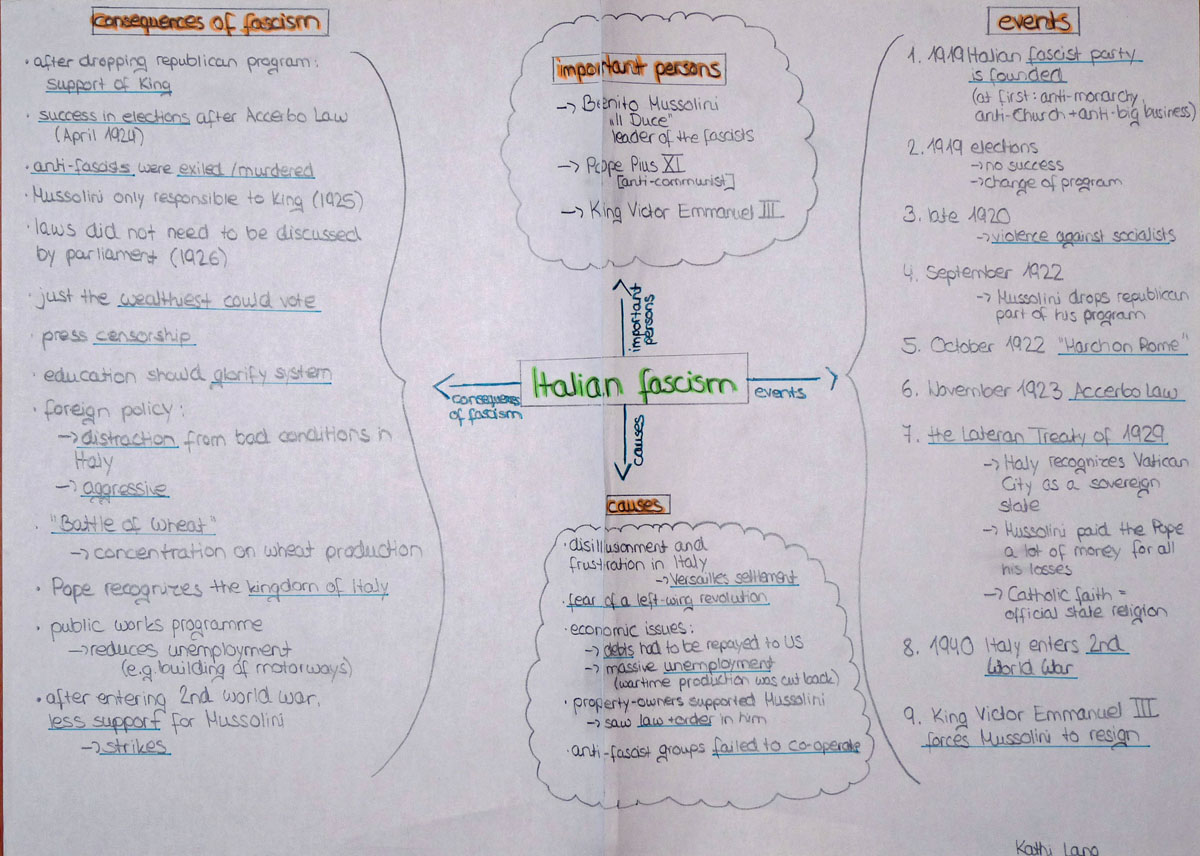 consequences of fascism
· after dropping republican program:
support of King
· success in elections after Accerbo Law
(April 1924)
· anti-fascists were exiled/murdered
· Mussolini only responsible to King (1925)
· laws did not need to be discussed
by parliament (1926)
· just the wealthiest could vote
· press censorship
· education should glorify system
· foreign policy:
→ distraction from bad conditions in
Italy
→ aggressive
· "Battle of Wheat"
→ concentration on wheat production
· Pope recognizes the kingdom of Italy
· public works programme
→ reduces unemployment
(e.g. building of motorways)
· after entering 2nd world war,
less support for Mussolini
→ strikes
important persons
→ Benito Mussolini
"Il Duce"
leader of the fascists
→ Pope Pius XI
[anti-communist]
→ King Victor Emmanuel III
important
persons
Italian fascism
consequences
of fascism
events
causes
causes
· disillusionment and
frustration in Italy
→ Versailles settlement
· fear of a left-wing revolution
· economic issues:
→ debts had to be repayed to US
→ massive unemployment
(wartime production was cut back)
· property-owners supported Mussolini
→ saw law + order in him
· anti-fascist groups failed to co-operate
events
1. 1919 Italian fascist party
is founded
(at first: anti-monarchy,
anti-Church + anti-big business)
2. 1919 elections
→ no success
→ change of program
3. late 1920
→ violence against socialists
4. September 1922
→ Mussolini drops republican
part of his program
5. October 1922 "March on Rome"
6. November 1923 Accerbo Law
7. the Lateran Treaty of 1929
→ Italy recognizes Vatican
City as a sovereign
state
→ Mussolini paid the Pope
a lot of money for all
his losses
→ Catholic faith =
official state religion
8. 1940 Italy enters 2nd
World War
9. King Victor Emmanuel III
forces Mussolini to resign
Kathi Lang